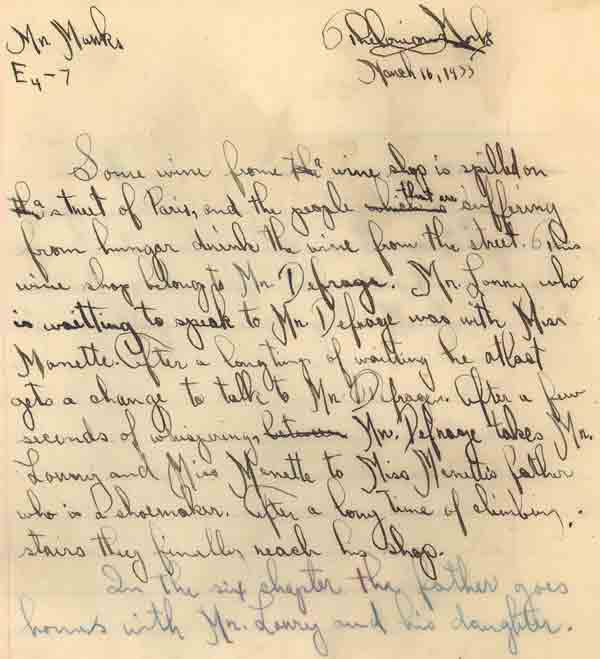 Mr. Manks
Thelonious Monk
E4-7
March 16, 1933
Some wine frome a wine shop is spilled on
a street of Paris, and the people that are suffering
from hungar drink the wine from the street. This
wine shop belongs to Mr. Defrage. Mr. Lorry who
is waitting to speak to Mr. Defrage was with Miss
Manette. After a long time of waiting he atlast
gets a change to talk to Mr. Defrage. After a few
seconds of whispering, between Mr. Defrage takes Mr.
Lorry and Miss Manette to Miss Manette's father
who is a shoemaker. After a long time of climbing
stairs they finally reach his shop.
In the six chapter the father goes
homes with Mr. Lorry and his daughter.